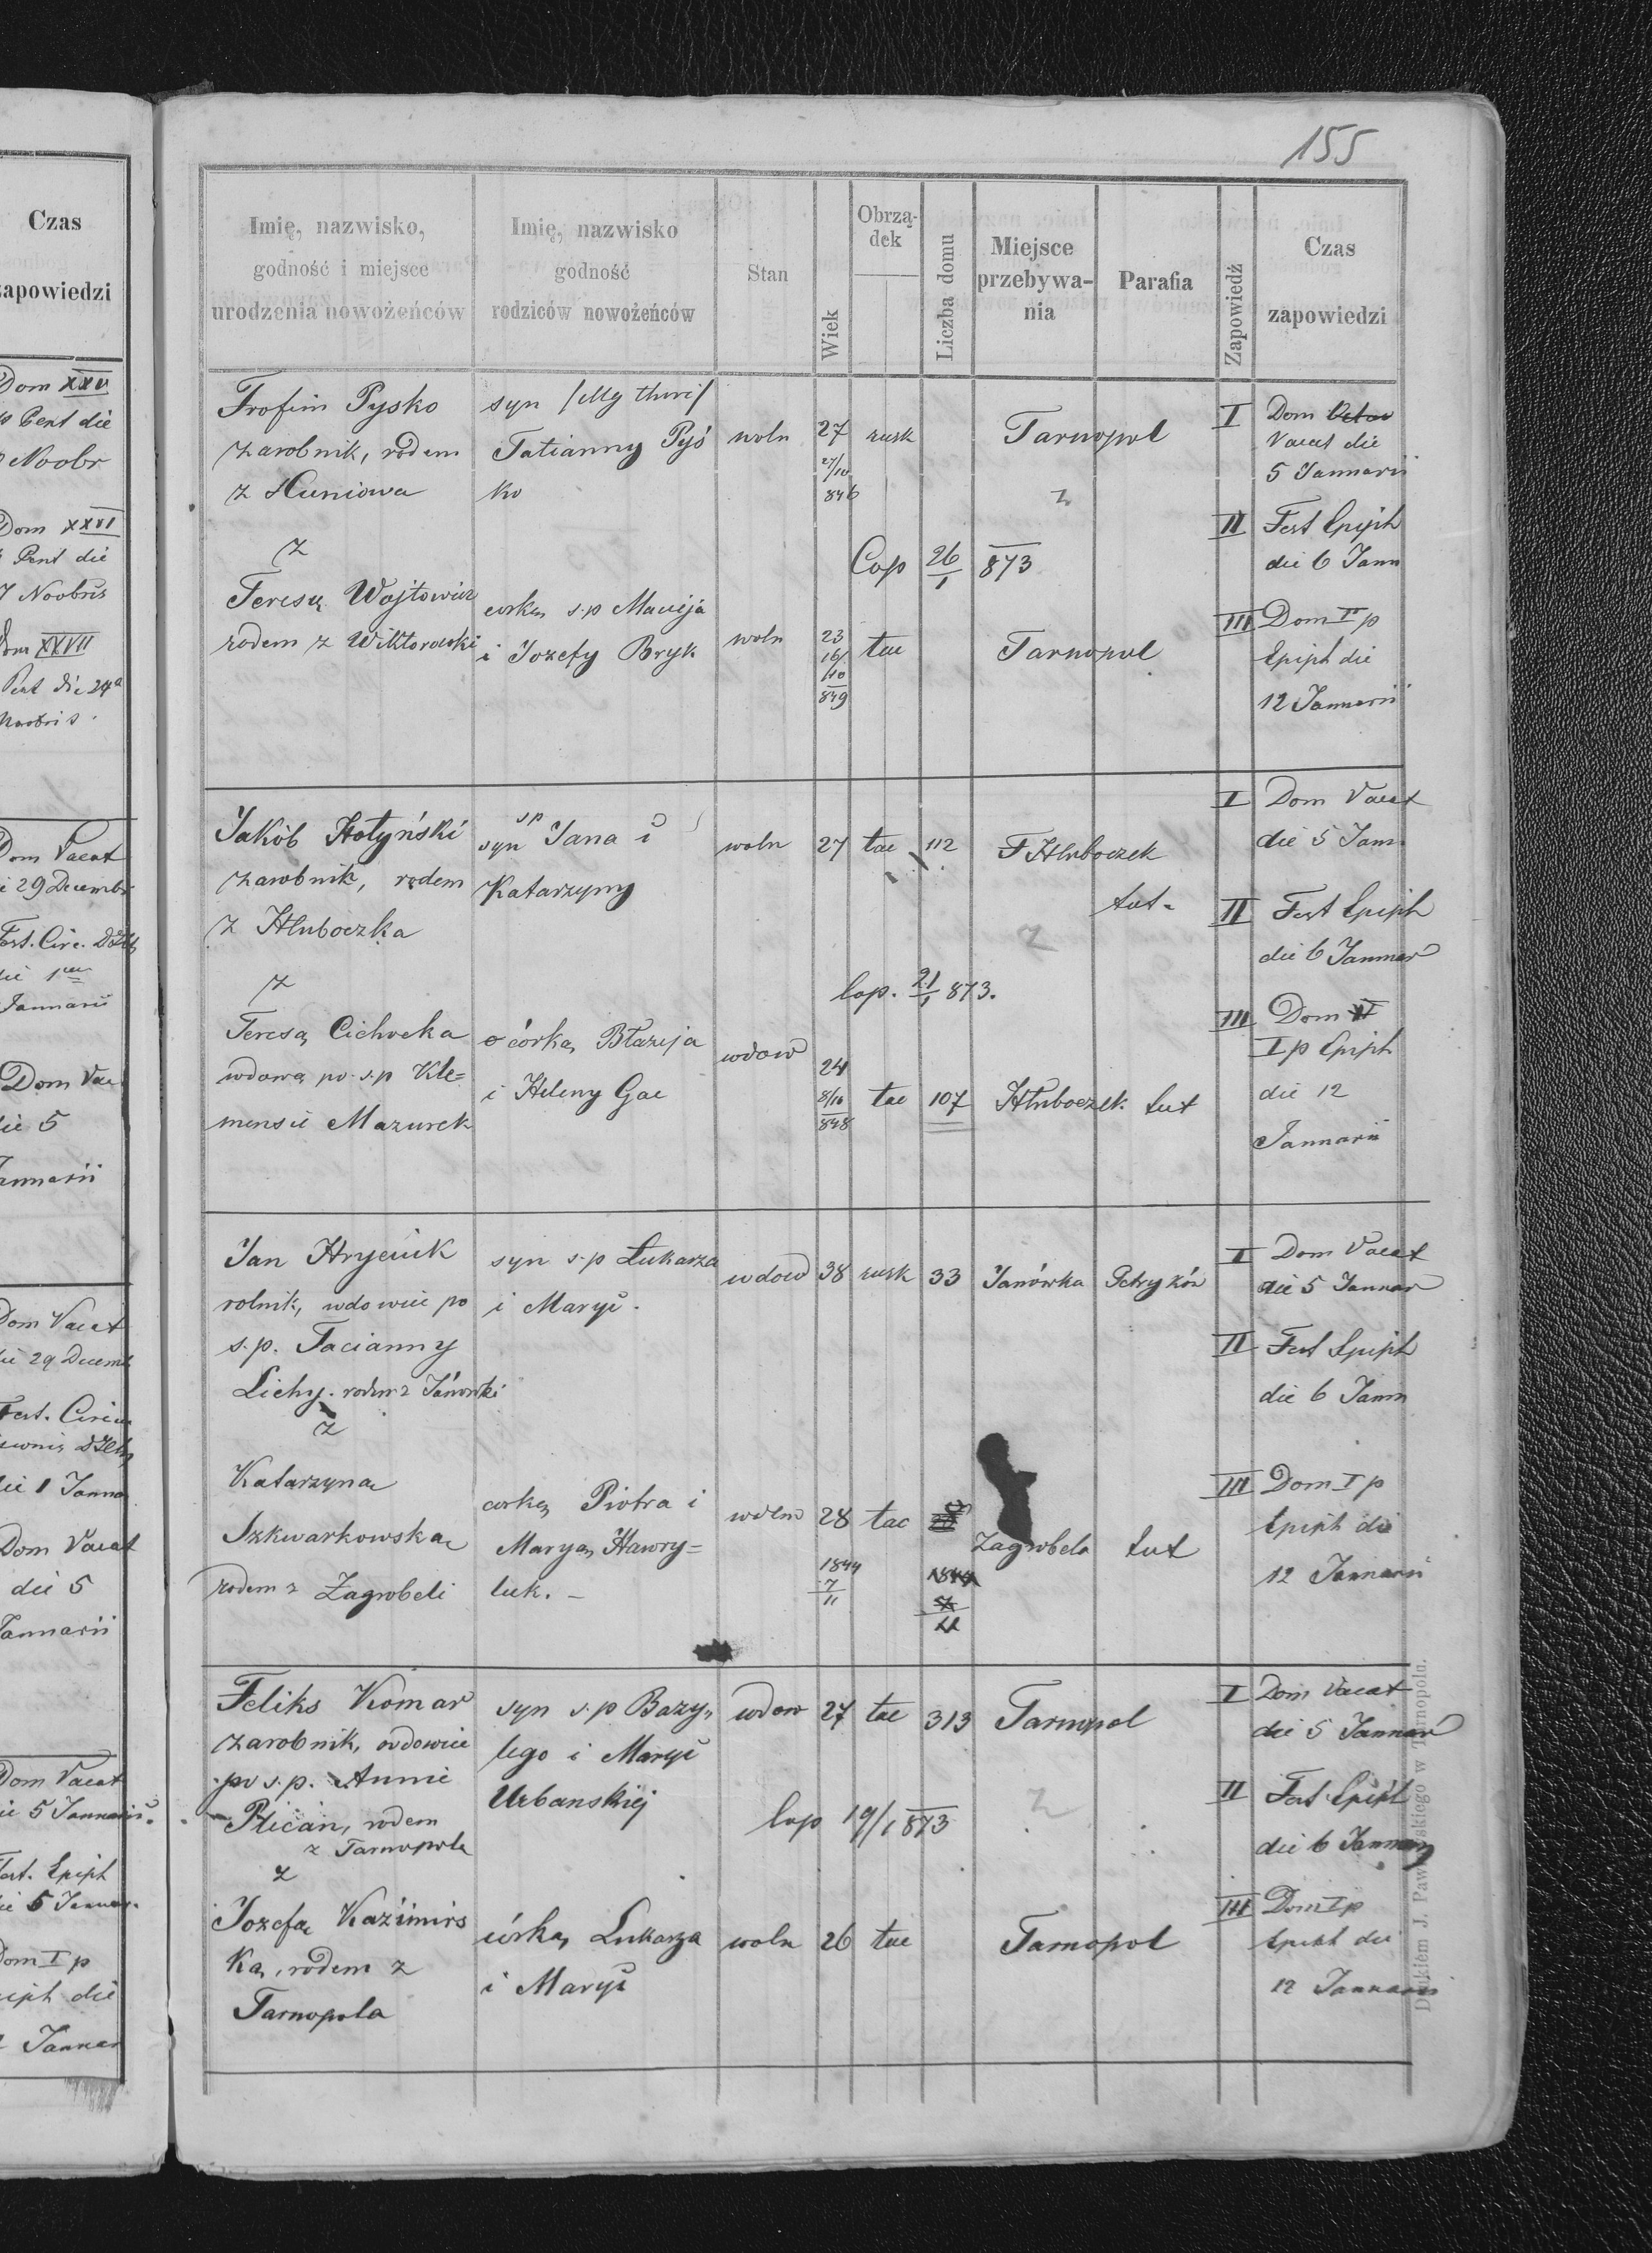 Czas
zapowiedzi
Dom XXV
p Pent die
Noobr
Dom XXVI
Pent die
7 Noobris
Dom XXVII
Pent die 24a
Noobris
Dom Vacat
29 Decembr
Fest. Circ.
die
Januarii
Dom Vac
die 5
Januarii
Dom Vacat
die 29 Decemb
Fest.
die 1 Janua
Dom Vacat
die 5
Januarii
Dom Vacat
die 5 Januarii
Fest. Epiph
Dom I p
Epiph die
Januar
155
Imię, nazwisko,
godność i miejsce
urodzenia nowożeńców
Imię, nazwisko
godność
rodziców nowożeńców
Stan
Wiek
Obrzą-
dek
Liczba domu
Miejsce
przebywa-
nia
Parafia
Zapowiedź
Czas
zapowiedzi
Trofim Pysko
zarobnik, rodem
z Huniowa
syn
Tatianny Pyś
ko
woln 27 rusk Tarnopol
27/10
846
I Dom
Vacat die
5 Januarii
II Fest Epiph
die 6 Jann
z
Cop 26/1 873
Teresą Wojtowicz
rodem z Wiktorowki
corką s.p Macieja
i Jozefy Bryk
woln 23 łac Tarnopol
16/
10
849
III Dom I p
Epiph die
12 Januarii
Jakób Hołyński
zarobnik, rodem
z Hłuboczka
sp
syn Jana i
Katarzyny
woln 27 łac 112 Hłuboczek
tut.
I Dom Vacat
die 5 Jann
II Fest Epiph
die 6 Januar
z
Cop. 21/1 873.
Teresą Cichocka
wdową po s.p Kle=
mensie Mazurek
córką Błażeja
i Heleny Gac
wdow 24 łac 107 Hłuboczek tut
8/10
848
III Dom
I p Epiph
die 12
Januarii
Jan Hryciuk
rolnik, wdowiec po
s.p. Tacianny
Lichy. rodem z Janowki
syn s.p Łukasza
i Maryi.
wdow 38 rusk 33 Janówka Petryków
I Dom Vacat
die 5 Januar
II Fest Epiph
die 6 Jann
z
Katarzyna
Szkwarkowska
rodem z Zagrobeli
corką Piotra i
Maryą Hawry=
luk. –
28 łac Zagrobela tut
1844
7
11
III Dom I p
Epiph die
12 Januarii
Feliks Komar
zarobnik, wdowiec
po s.p. Annie
Plician, rodem
z Tarnopola
syn s.p Bazy=
lego i Maryi
Urbanskiej
wdow 27 łac 313 Tarnopol
Cop 19/1 873
I Dom Vacat
die 5 Januar
II Fest Epiph
die 6 Januar
z
Jozefa Kaźimirs
ką, rodem z
Tarnopola
córką Lukasza
i Maryi
woln 26 łac Tarnopol
III Dom I p
Epiph die
12 Januarii
Drukiem J. Pawłowskiego w Tarnopolu.